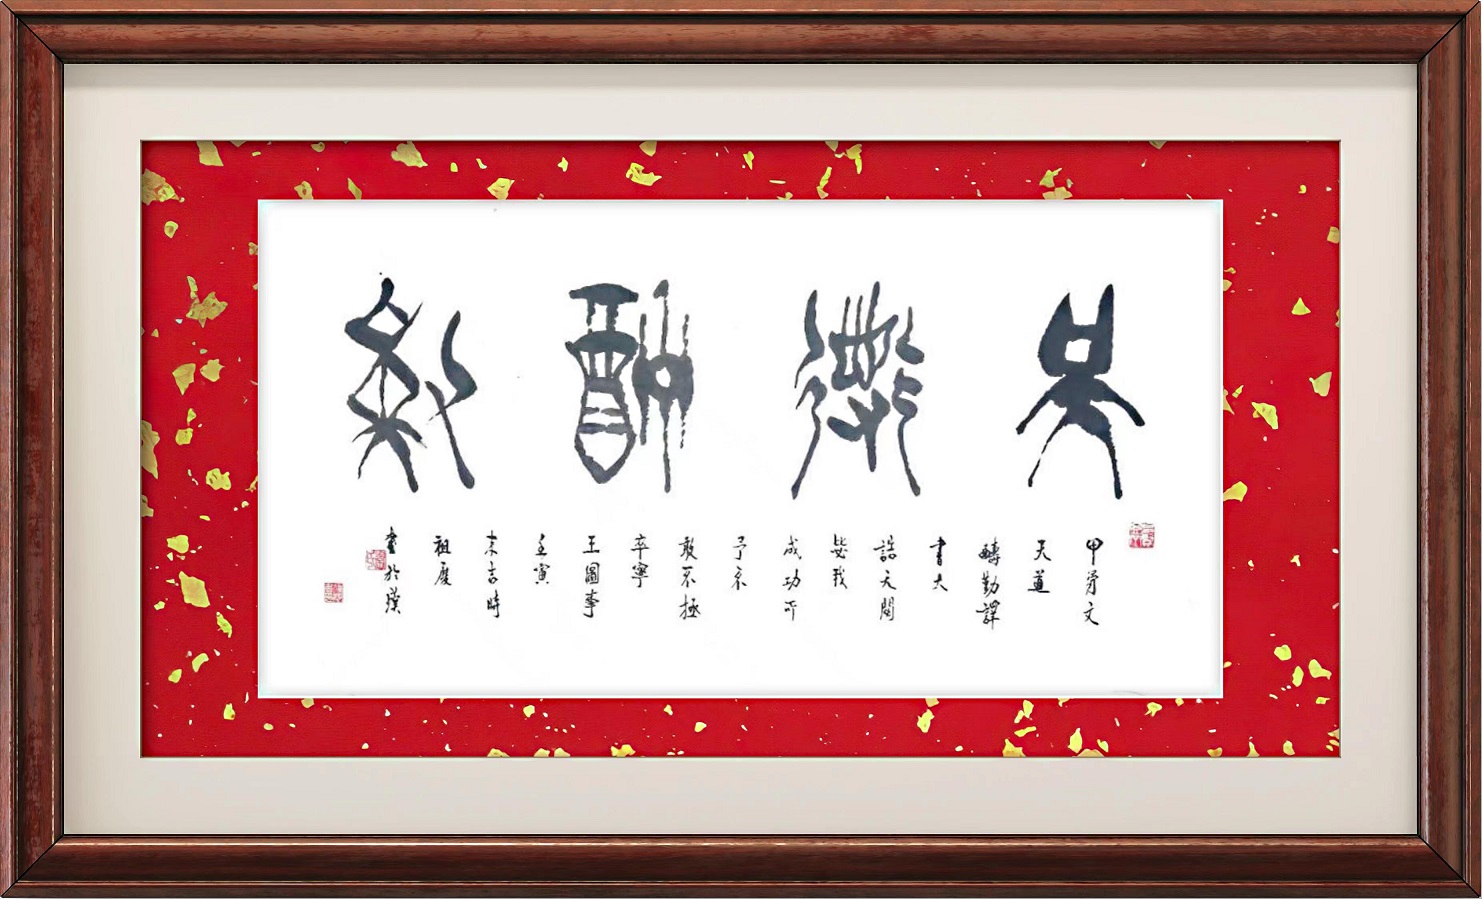 天道酬勤
甲骨文
天道
醻勤譯
書大
誥天閟
毖我
成功所
予不
敢不極
卒寧
王圖事
壬寅
吉時
祖慶
書於漢